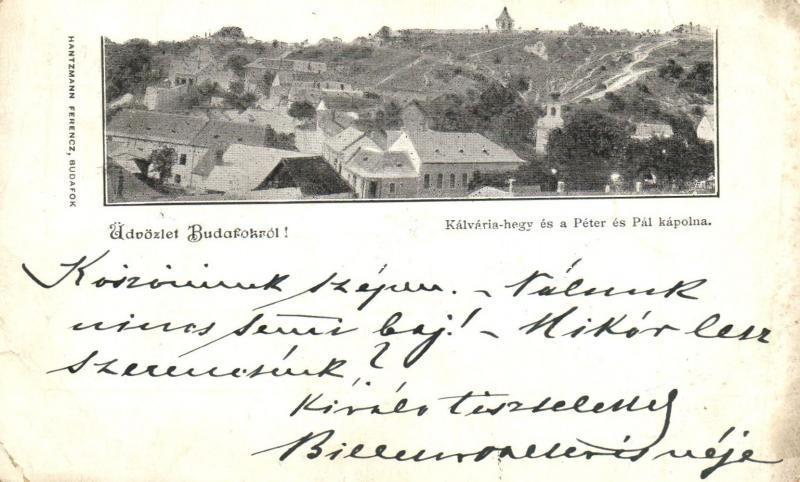 HANTZMANN FERENCZ, BUDAFOK
Üdvözlet Budafokról!
Kálvária-hegy és a Péter és Pál kápolna.
Köszönünk szépen. – Nálunk
nincs semi baj! – Mikór lesz
szerencsénk?
Kiváló tisztelettel
és neje